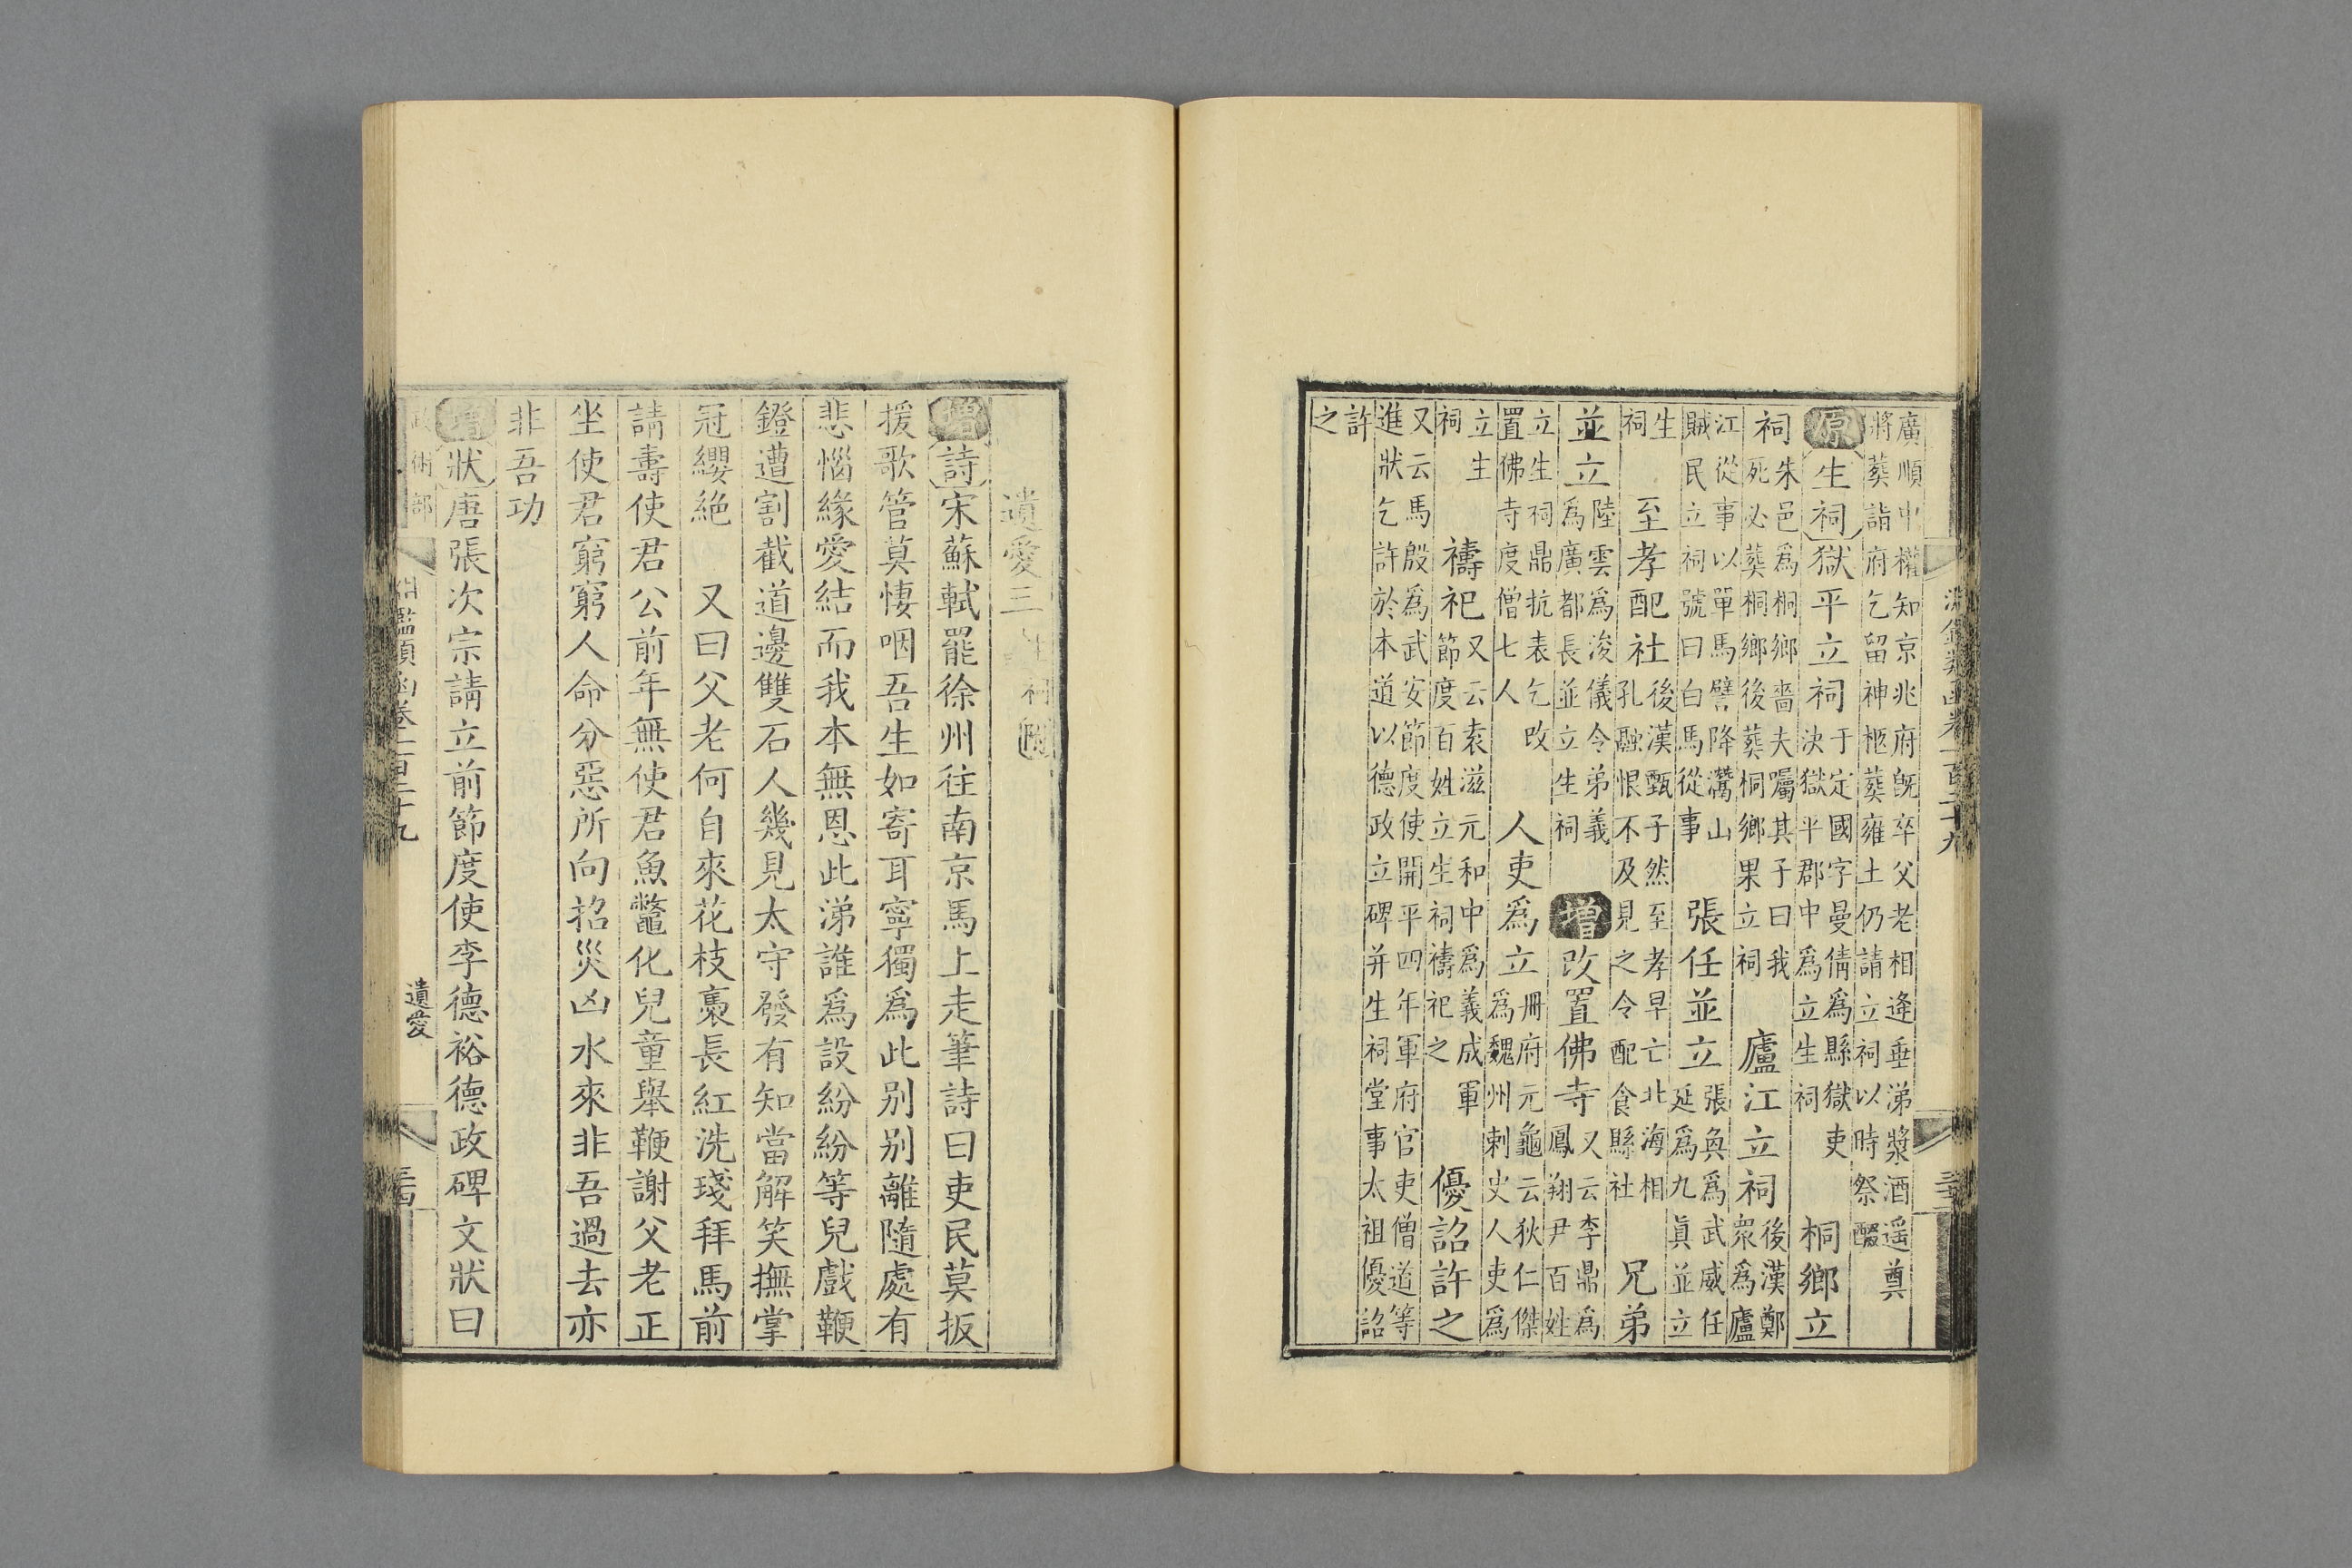 淵鑑類函卷一百二十九 三十三
廣順中權知京兆府旣卒父老相逢垂涕漿酒遥奠
將葬詣府乞留神柩葬雍土仍請立祠以時祭醊
原 生祠 獄平立祠 于定國字曼倩爲縣獄吏決獄平郡中爲立生祠 桐鄉立
祠 朱邑爲桐鄉嗇夫囑其子曰我死必葬桐鄉後葬桐鄉果立祠 廬江立祠 後漢鄭衆爲廬
江從事以單馬譬降灊山賊民立祠號曰白馬從事 張任並立 張奐爲武威任延爲九眞並立
生祠 至孝配社 後漢甄子然至孝早亡北海相孔融恨不及見之令配食縣社 兄弟
並立 陸雲爲浚儀令弟義爲廣都長並立生祠 增 改置佛寺 又云李鼎爲鳳翔尹百姓
立生祠鼎抗表乞改置佛寺度僧七人 人吏爲立 冊府元龜云狄仁傑爲魏州刺史人吏爲
立生祠 禱祀 又云袁滋元和中爲義成軍節度百姓立生祠禱祀之 優詔許之
又云馬殷爲武安節度使開平四年軍府官吏僧道等
進狀乞許於本道以德政立碑并生祠堂事太祖優詔
許之
遺愛三 生祠附
增 詩 宋蘇軾罷徐州往南京馬上走筆詩曰吏民莫扳
援歌管莫悽咽吾生如寄耳寧獨爲此别别離隨處有
悲惱緣愛結而我本無恩此涕誰爲設紛紛等兒戲鞭
鐙遭割截道邊雙石人幾見太守發有知當解笑撫掌
冠纓絶 又曰父老何自來花枝裊長紅洗琖拜馬前
請壽使君公前年無使君魚鼈化兒童舉鞭謝父老正
坐使君窮窮人命分惡所向招災凶水來非吾過去亦
非吾功
增 狀 唐張次宗請立前節度使李德裕德政碑文狀曰
政術部 淵鑑類函卷一百二十九 遺愛 三十四